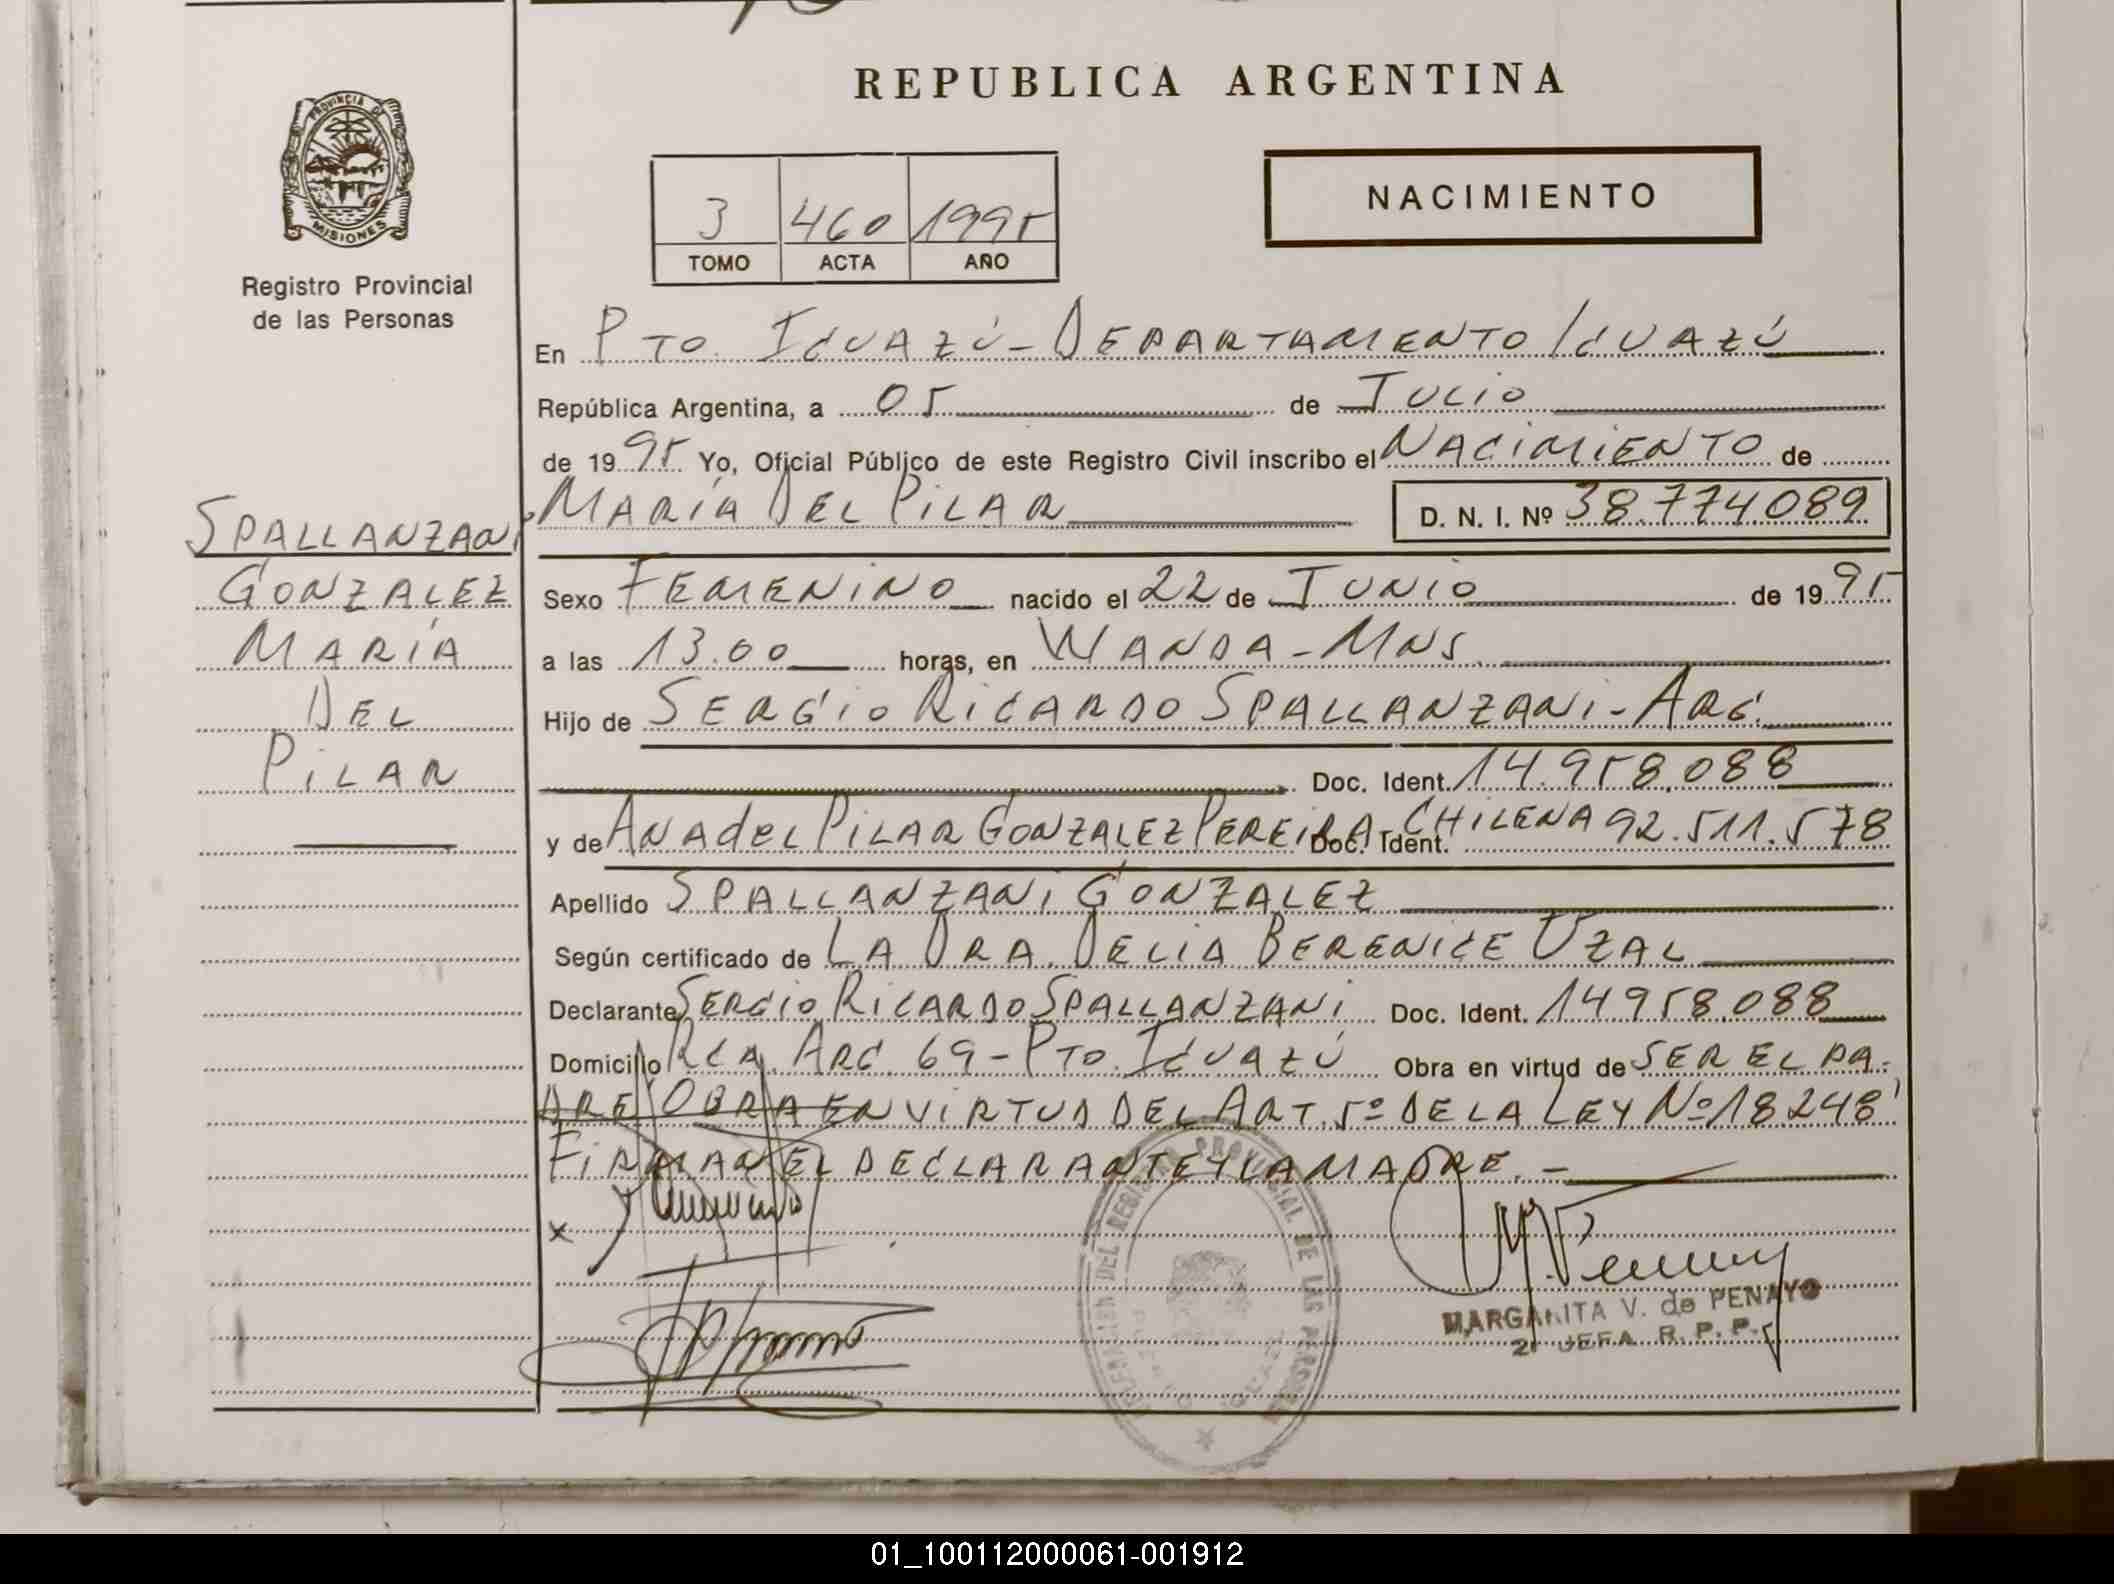 REPUBLICA ARGENTINA
PROVINCIA DE
MISIONES
Registro Provincial
de las Personas
NACIMIENTO
3 460 1995
TOMO ACTA AÑO
En PTO. IGUAZÚ - DEPARTAMENTO IGUAZÚ
República Argentina, a 05 de JULIO
de 1995 Yo, Oficial Público de este Registro Civil inscribo el NACIMIENTO de
MARÍA DEL PILAR D. N. I. Nº 38.774.089
SPALLANZANI
GONZALEZ
MARÍA
DEL
PILAR
Sexo FEMENINO nacido el 22 de JUNIO de 1995
a las 13.00 horas, en WANDA - MNS.
Hijo de SERGIO RICARDO SPALLANZANI - ARG.
Doc. Ident. 14.958.088
y de ANA del PILAR GONZALEZ PEREIRA - CHILENA Doc. Ident. 92.511.578
Apellido SPALLANZANI GONZALEZ
Según certificado de LA DRA. DELIA BERENICE UZAL
Declarante SERGIO RICARDO SPALLANZANI Doc. Ident. 14958.088
Domicilio RCA. ARG. 69 - PTO. IGUAZÚ Obra en virtud de SER EL PA-
DRE OBRA EN VIRTUD DEL ART. 5º DE LA LEY Nº 18248
FIRMAN EL DECLARANTE Y LA MADRE. -
x
DEL REGISTRO PROVINCIAL DE LAS PERSONAS
MARGARITA V. de PENAYO
2ª JEFA R. P. P.
01_100112000061-001912